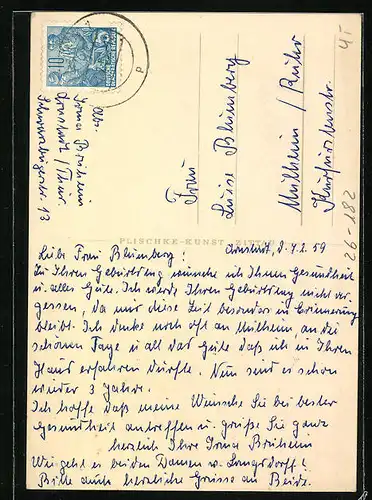 Abs.
Irma Brüheim
Arnstadt / Thür.
Frau
Luise Blumberg
Mülheim / Ruhr
Kurfürstenstr.
26-182
PLISCHKE-KUNST ZITTAU
Arnstadt, d. 4.2.59
Liebe Frau Blumberg!
Zu Ihrem Geburtstag wünsche ich Ihnen Gesundheit
u. alles Gute. Ich werde Ihren Geburtstag nicht ver-
gessen, da mir diese Zeit besonders in Erinnerung
bleibt. Ich denke noch oft an Mülheim, an die
schönen Tage u. all das Gute daß ich in Ihrem
Haus erfahren durfte. Nun sind es schon
wieder 3 Jahre.
Ich hoffe daß meine Wünsche Sie bei bester
Gesundheit antreffen u. grüße Sie ganz
herzlich Ihre Irma Brüheim
Wie geht es beiden Damen v. Langsdorff?
Bitte auch herzliche Grüsse an Beide.